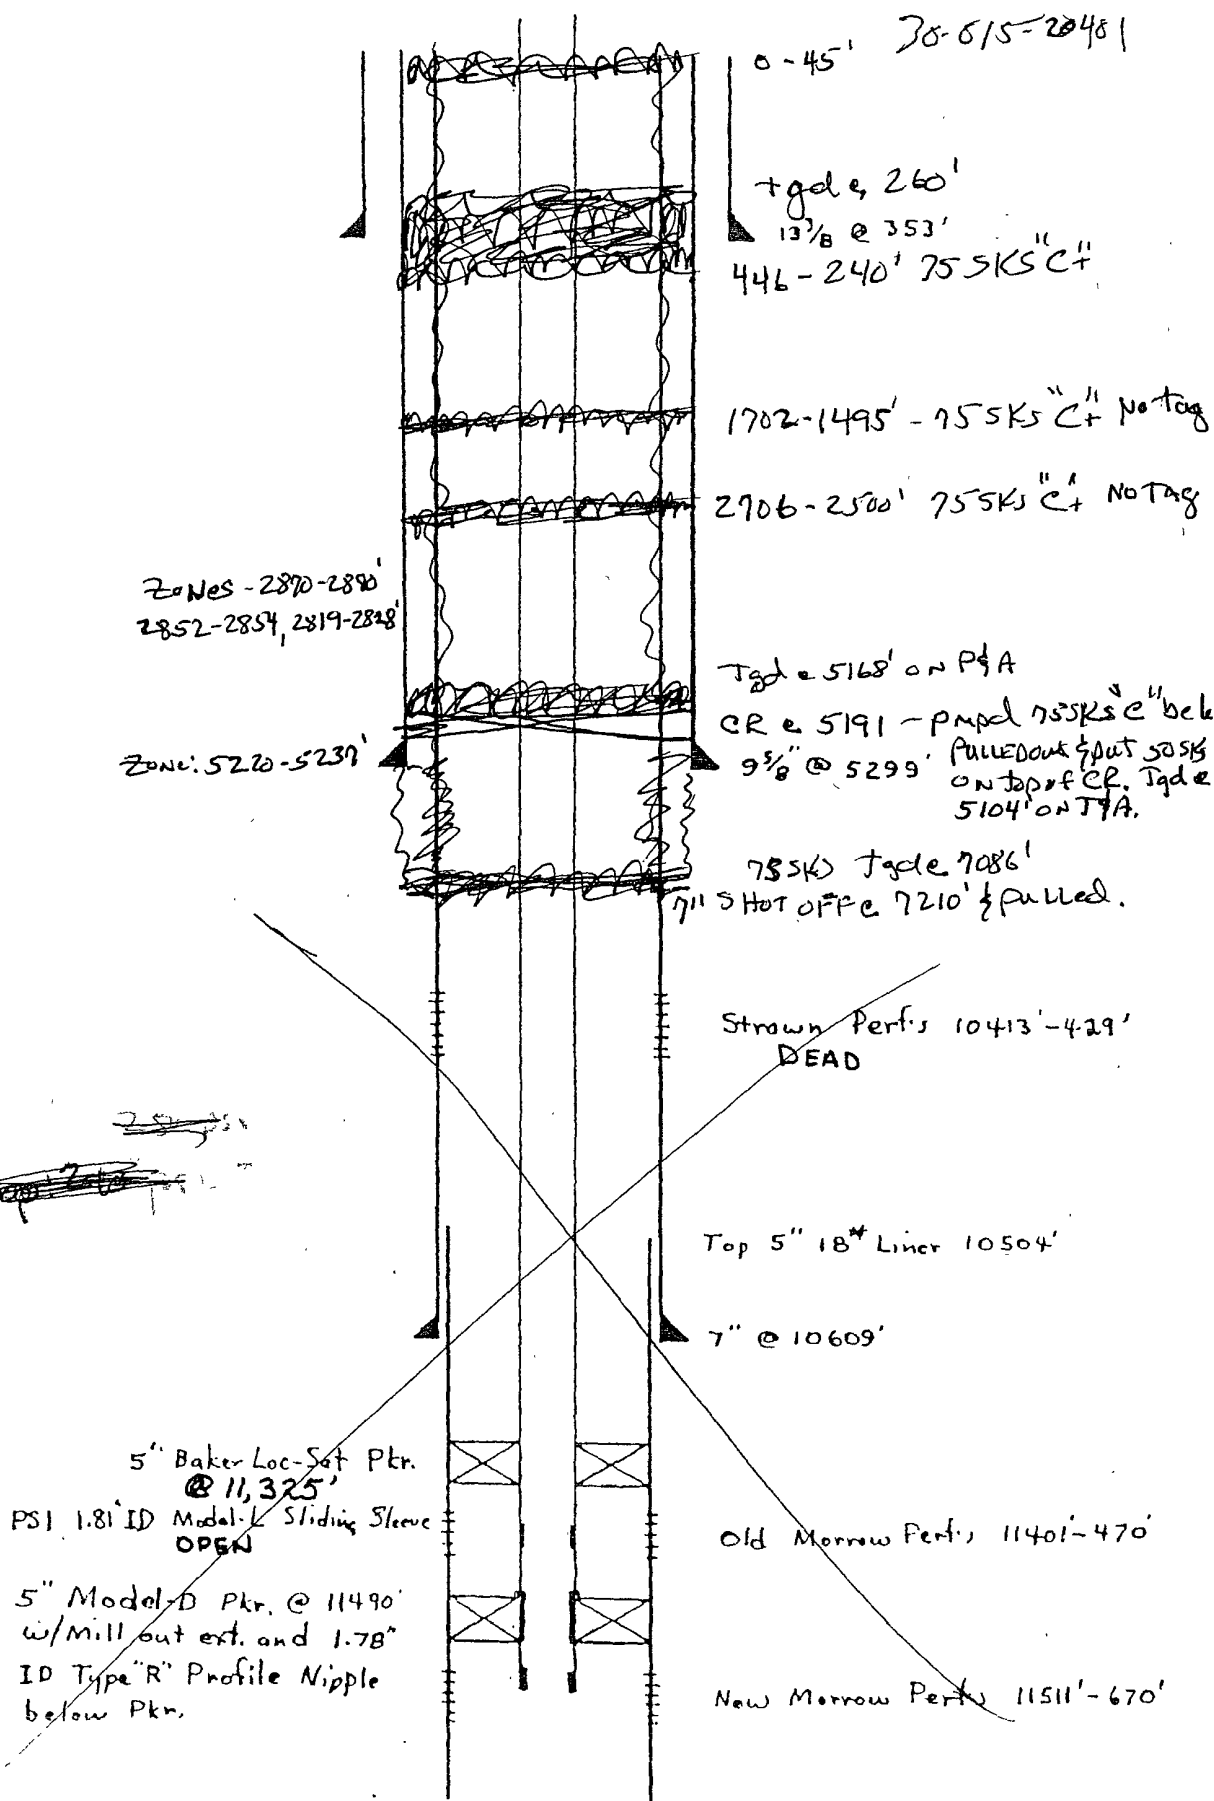 30-015-20481
0-45'
tgd @ 260'
13 3/8 @ 353'
446-240' 75 SKS "C+"
1702-1495' - 75 SKs "C+" No tag
2706-2500' 75 SKs "C+" No Tag
Zones - 2870-2880'
2852-2854, 2819-2828'
Tgd @ 5168' on P&A
CR @ 5191 - pmpd 75 SKs "C" belo
Zone: 5220-5237'
9 5/8" @ 5299'
PULLED out & put 50 SKs
on top of CR. Tgd @
5104' on T&A.
75 SKs Tgd @ 7086'
7" SHOT OFF @ 7210' & pulled.
Strawn Perfs 10413'-429'
DEAD
Top 5" 18# Liner 10504'
7" @ 10609'
5" Baker Loc-Set Pkr.
@ 11,325'
PSI 1.81" ID Model-L Sliding Sleeve
OPEN
Old Morrow Perfs 11401'-470'
5" Model-D Pkr. @ 11490'
w/Mill out ext. and 1.78"
ID Type "R" Profile Nipple
below Pkr.
New Morrow Perfs 11511'-670'